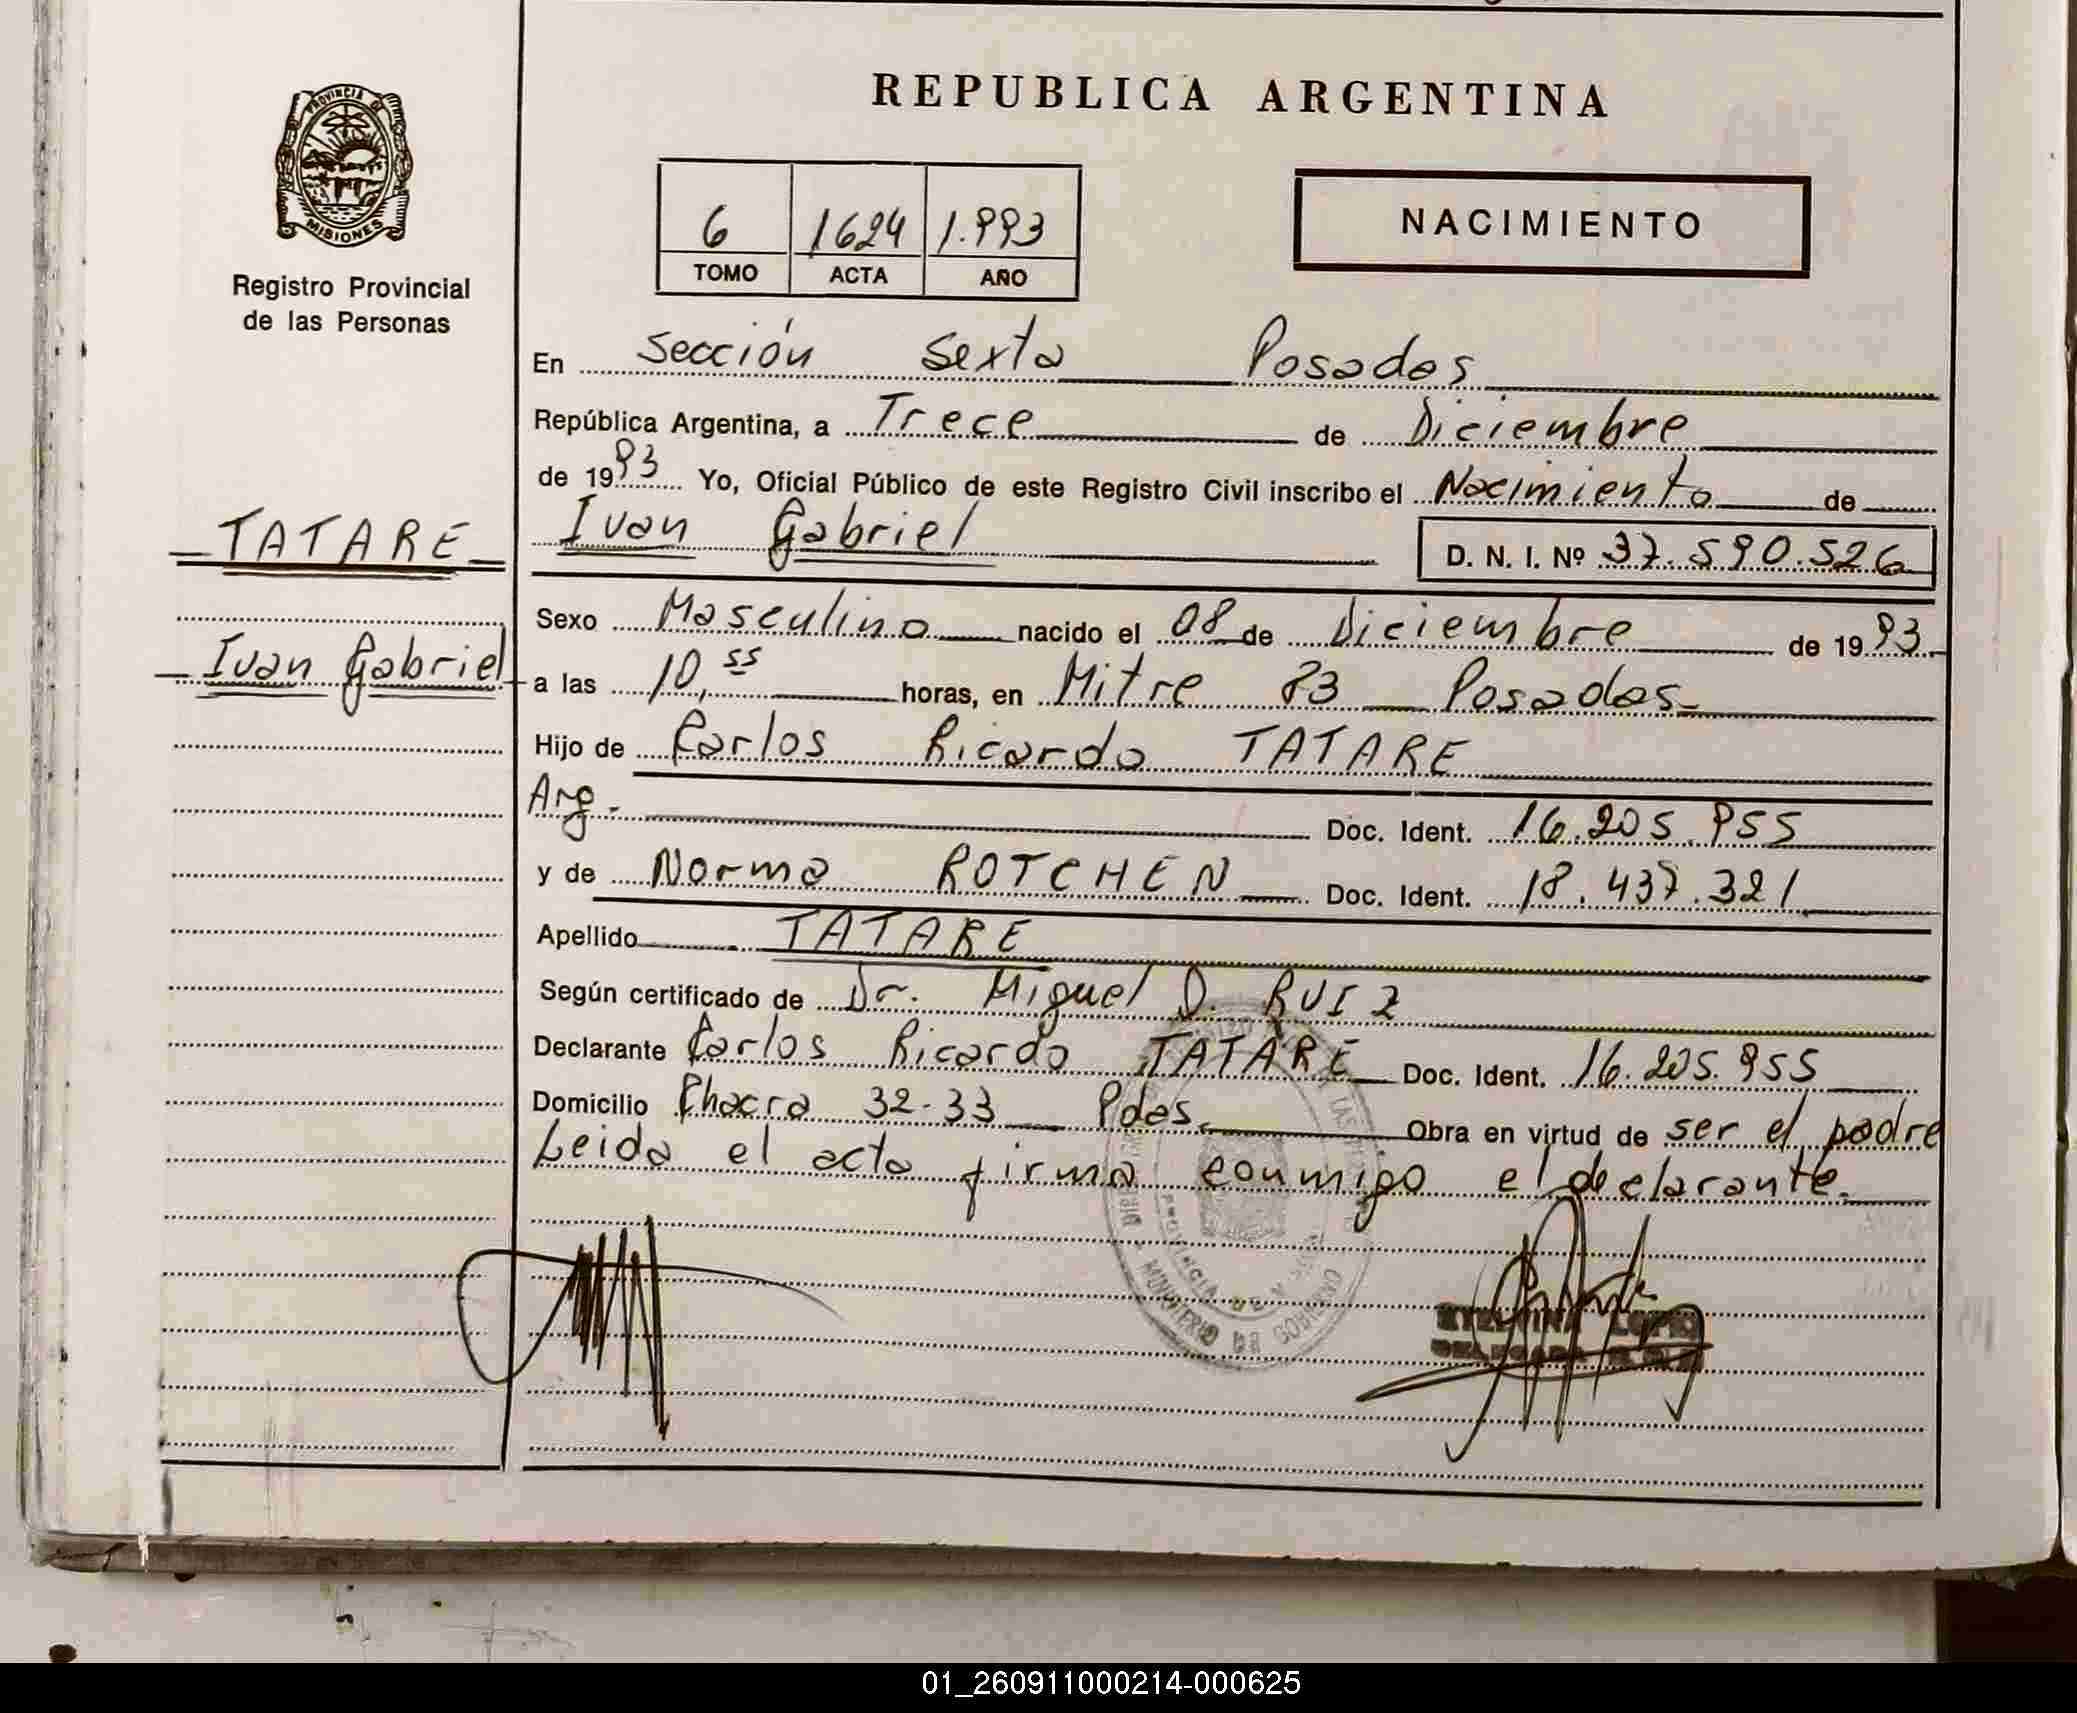 REPUBLICA ARGENTINA
PROVINCIA DE
MISIONES
Registro Provincial
de las Personas
6 1624 1.993
TOMO ACTA AÑO
NACIMIENTO
En Sección Sexta Posadas
República Argentina, a Trece de Diciembre
de 1993 Yo, Oficial Público de este Registro Civil inscribo el Nacimiento de
TATARE
Ivan Gabriel D. N. I. Nº 37.590.526
Sexo Masculino nacido el 08 de Diciembre de 1993
Ivan Gabriel
a las 10,55 horas, en Mitre 83 Posadas
Hijo de Carlos Ricardo TATARE
Arg. Doc. Ident. 16.205.955
y de Norma ROTCHEN Doc. Ident. 18.437.321
Apellido TATARE
Según certificado de Dr. Miguel D. RUIZ
Declarante Carlos Ricardo TATARE Doc. Ident. 16.205.955
Domicilio Chacra 32-33 Pdas. Obra en virtud de ser el padre
Leida el acta firma conmigo el declarante.
PROVINCIA DE
MINISTERIO DE GOBIERNO
01_260911000214-000625